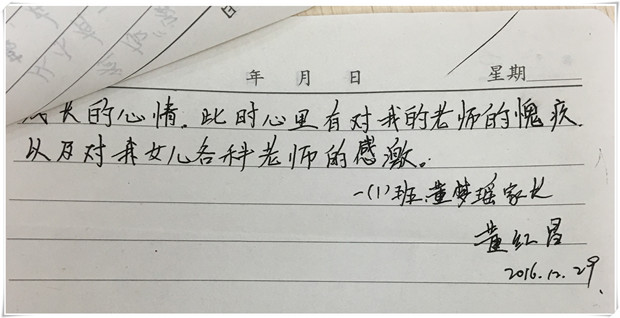 年 月 日 星期
成长的心情。此时心里有对我的老师的愧疚
以及对我女儿各科老师的感激。
一(1)班 董梦瑶家长
董红昌
2016.12.29